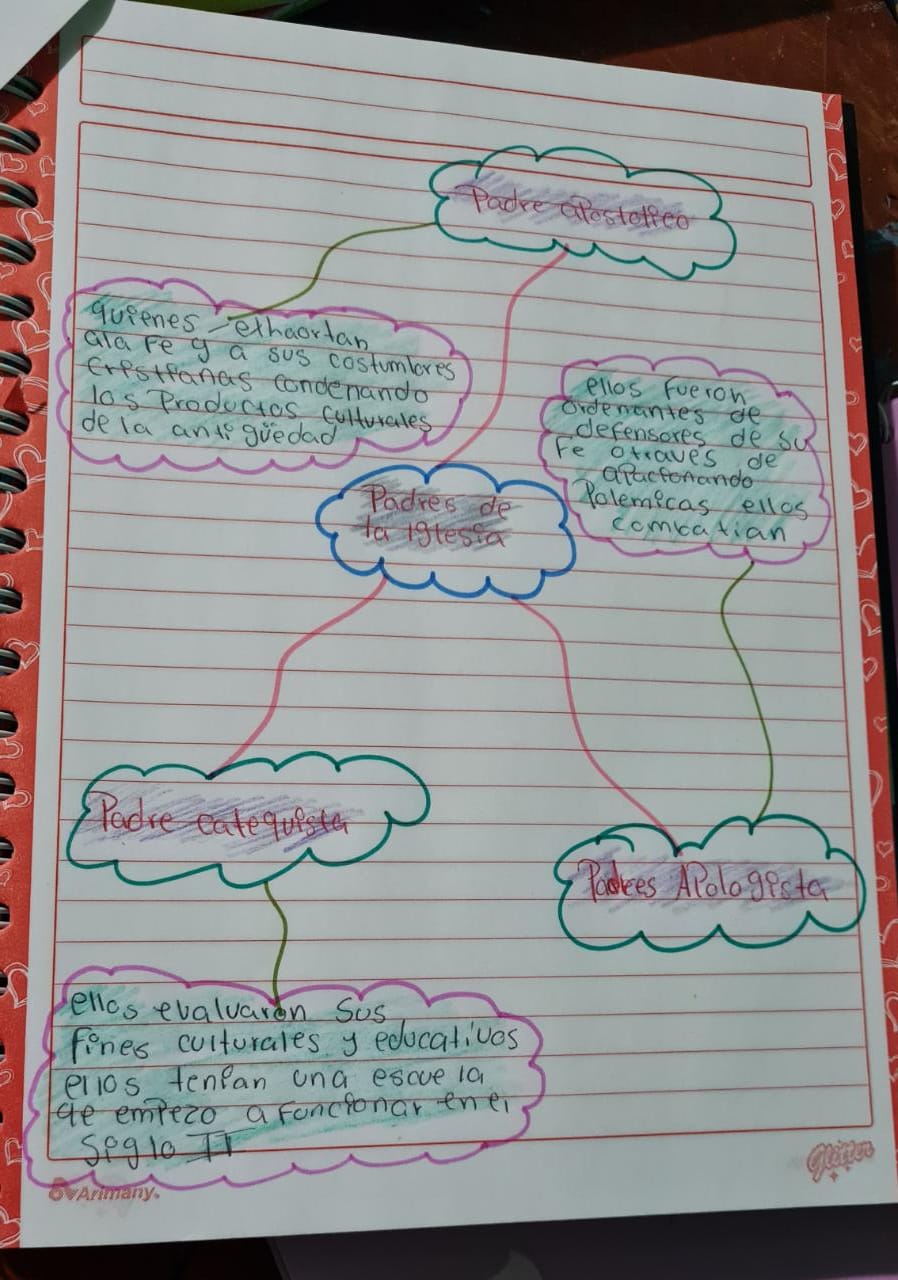 Padre apostolico
quienes exhaortan
ala Fe y a sus costumbres
cristianas condenando
los Productos culturales
de la antigüedad
ellos fueron
ordenantes de
defensores de su
Fe otraves de
apacionando
Polemicas ellos
comcatian
Padres de
la Iglesia
Padre catequista
Padres APologista
ellos evaluaron Sus
Fines culturales y educativos
ellos tenian una escuela
qe empezo a funcionar en el
Siglo II
Arimany.
Glitter